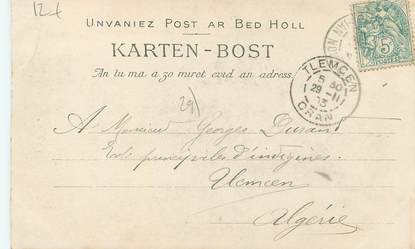 12f
UNVANIEZ POST AR BED HOLL
KARTEN-BOST
An tu ma a zo muret evid an adress.
TLEMCEN
5 30
29-11
03
ORAN
5
POSTES
29)
A Monsieur Georges Durand
École principales d'indigènes
Tlemcen
Algérie